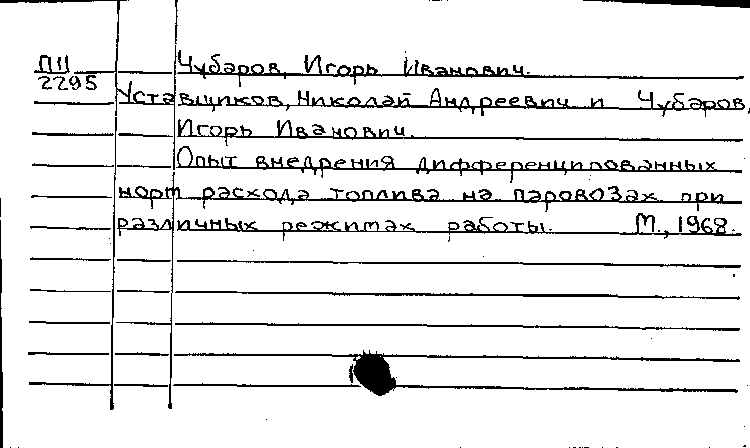 П11 Чубаров, Игорь Иванович.
2295
Уставщиков, Николай Андреевич и Чубаров,
Игорь Иванович.
Опыт внедрения дифференцированных
норм расхода топлива на паровозах при
различных режимах работы. М., 1968.